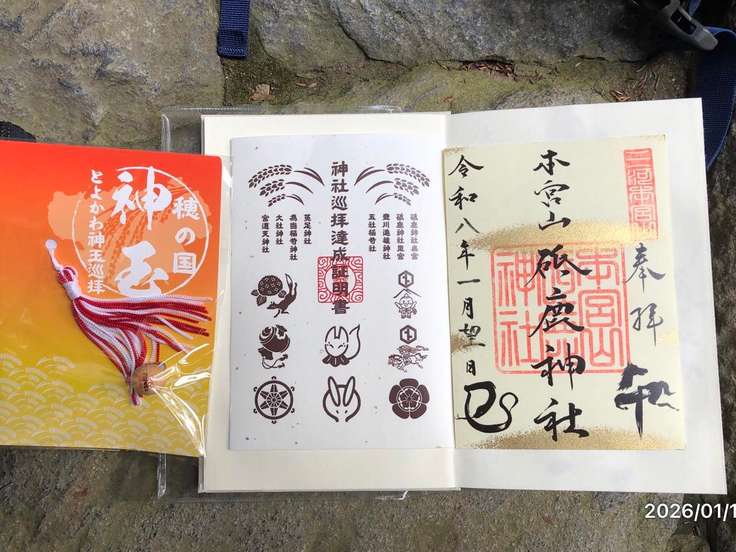 穂の国
神玉
とよかわ神玉巡拝
神社巡拝達成証明書
砥鹿神社奥宮
砥鹿神社里宮
豊川進雄神社
五社稲荷社
菟足神社
大社神社
宮道天神社
奉拝
三河本宮山
本宮山
砥鹿神社
本宮山
神社
令和八年一月
日
2026/01/1